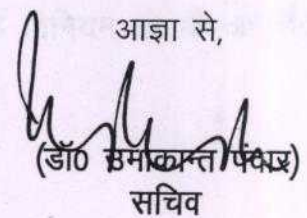 आज्ञा से,
(डॉ0 उमाकान्त पंवार)
सचिव